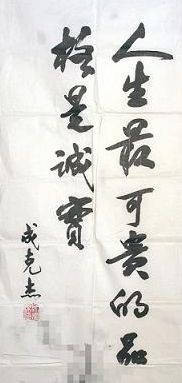 人生最可贵的品
格是诚实
成克杰